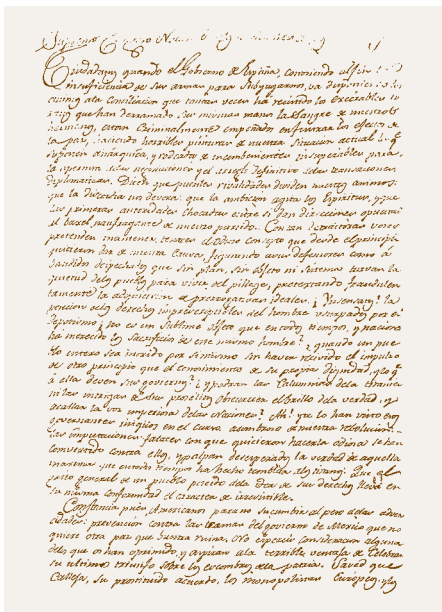 Supremo
Ciudadanos quando el Gobierno de España, conociendo
insuficiencia de sus armas para subyugarnos, va
a la Conciliacion que tantas veces ha resistido los execrables
que han derramado por mano la sangre de nuestros
hermanos, estan Criminalmente empeñados en frustrar los efectos de
la paz, haciendo horribles pinturas de nuestra Situacion actual
suponen anarquica, y rodeada de inconvenientes insuperables para
la de sus y el exito definitivo de las transaciones
diplomaticas. Dicen que puentes rivalidades dividen nuestros animos:
que la nos devora: que la ambicion agita los Espiritus, y que
las primeras autoridades Chocadas entre si dan direcciones opuestas
al baxel naufragante de nuestro partido. Con tan detractoras voces
pretenden mantener el Odioso concepto que desde el principio
hicieron de nuestra Causa, figurando a sus defensores como a
bandidos despechados que sin plan, sin objeto ni Sistema turban la
quietud de los pueblos para vivir del pillage, pretextando fraudulen
tamente la adquisicion de prerrogativas ideales. ¡Insensatos! la
de los derechos imprescriptibles del hombre usurpados por el
despotismo ¿no es un Sublime objeto que en todos tiempos, y naciones
ha merecido los Sacrificios de este mismo hombre? ¿quando un pue
blo entero sea movido por si mismo sin haver recivido el impulso
de otro principio que el conocimiento de su propia dignidad, y lo q.
á ella deven sus goviernos? ¿y podran las Calumnias de la tirania
ni las intrigas de sus proselitos obscurecer el brillo de la verdad, y
acallar la voz imperiosa de las Naciones? Ah! ya lo han visto esos
governantes iniquos en el curso asombroso de nuestra rebolucion:
las imputaciones falaces con que quicieron hacerla odiosa se han
convertido contra ellos, y palpan desesperados la verdad de aquella
maxima que en todos tiempos ha hecho temblar a los tiranos: Que al
voto general de un pueblo preside la Idea de sus derechos lleva en
su misma conformidad el caracter de irresistible.
Constancia pues Americanos para no sucumbir al peso de las adver
cidades: prevencion contra las tramas del govierno de Mexico que no
quiere otra paz que nuestra ruina. No exercio consideracion alguna
de los que os han oprimido, y aspiran a la terrible ventaja de Celebrar
su ultimo triunfo sobre los escombros de la patria. Saved que
Calleja, su prostituido acuerdo, los monopolistas Europeos y los